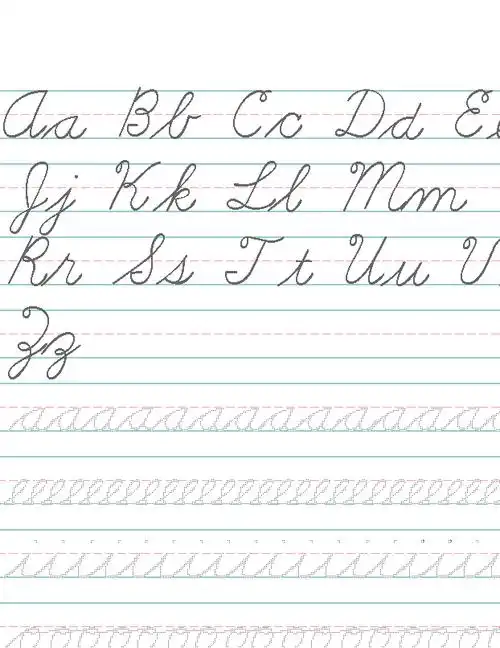 Aa Bb Cc Dd Ee
Jj Kk Ll Mm
Rr Ss Tt Uu V
Zz
a a a a a a a a a a a a a a a a
e e e e e e e e e e e e e e e e e e e e
i i i i i i i i i i i i i i i i i i
o o o o o o o o o o o o o o o o